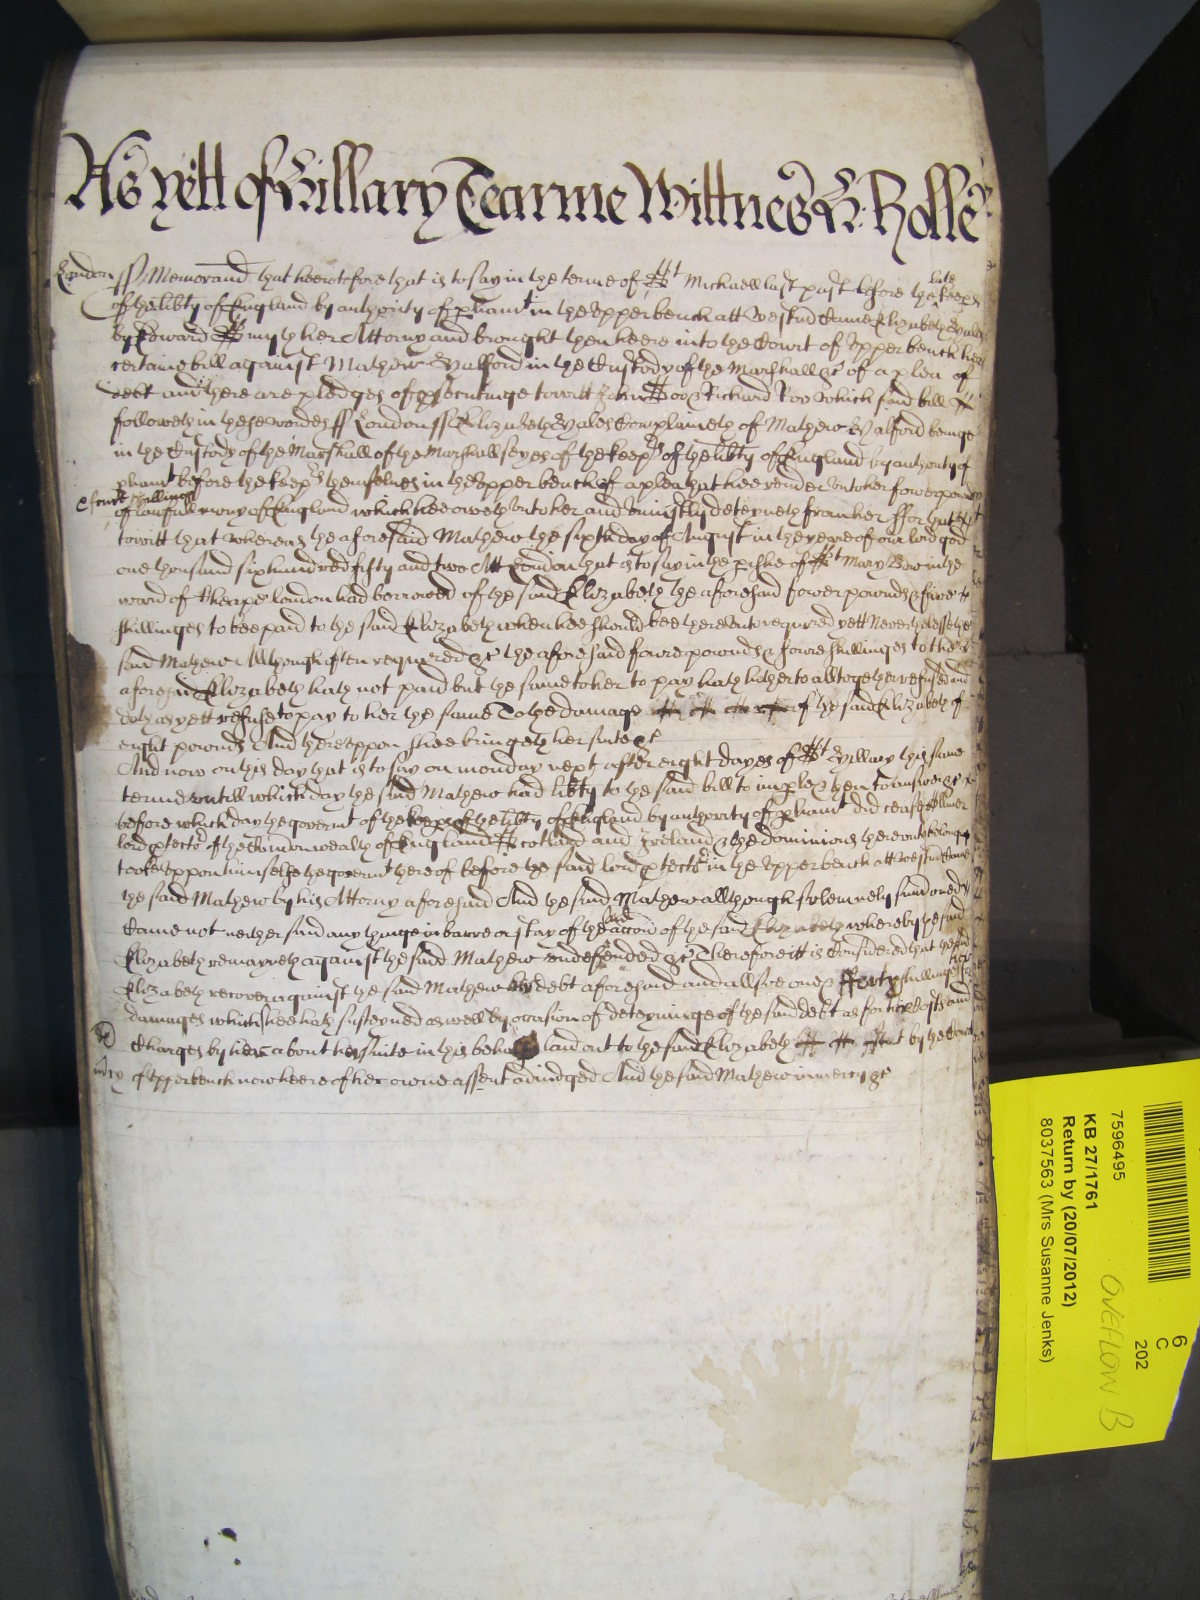 As yett of Hillary Tearme Wittnes H: Rolle
London ss Memorand that heeretofore that is to say in the terme of St Michaell last past before the late keeps
of the libty of England by authority of pliamt in the upper bench att Westm Came Elizabeth Eyales
by Edward Smyth her Attorny and brought then heere into the Court of upper bench her
certaine bill against Mathew Walford in the Custody of the Marshall &c of a plea of
debt and there are pledges of psecutinge towitt John Doo & Richard Roo Which said bill
followeth in these wordes ss London ss Elizabeth Eyales Complaineth of Mathew Walford beinge
in the Custody of the Marshall of the Marshallseyes of the keeps of the libty of England by authority of
pliamt before the keeps themselves in the upper bench of a plea that hee render unto her fower pounds
& foure shillings
of lawfull mony of England which hee oweth unto her and uniustly deteyneth from her ffor that
towitt that whereas the aforesaid Mathew the sixth day of August in the yeare of our lord god
one thousand six hundred fifty and two Att London that is to say in the pishe of St Mary Bow in the
ward of Cheape london had borrowed of the said Elizabeth the aforesaid fower pounds & fowre
shillinges to bee paid to the said Elizabeth when hee should bee thereunto required yett Neverthelesse the
said Mathew Allthough often required &c the aforesaid fowre pounds & fowre shillinges to the
aforesaid Elizabeth hath not paid but the same to her to pay hath hitherto alltogether refused and
doth as yett refuse to pay to her the same To the damage of the said Elizabeth of
eight pounds And thereuppon shee bringeth her suite &c
And now on this day that is to say on monday next after eight dayes of St Hillary this same
terme untill which day the said Mathew had libty to the said bill to imple & then to answer &c
before which day the govermt of the keeps of the libty of England by authority of pliamt did cease & Oliver
lord ptector of the Commonwealth of England Scotland and Ireland & the dominions thereunto belonging
tooke uppon himselfe the govermt thereof before the said lord ptector in the upper bench att Westm Came
the said Mathew by his Attorny aforesaid And the said Mathew allthough solemnely sumoned
Came not neither said any thinge in barre or stay of the said accion of the said Elizabeth whereby the said
Elizabeth remayneth against the said Mathew undefended &c Therefore itt is Considered that the said
Elizabeth recover against the said Mathew her debt aforesaid and allsoe one & fforty shillings for her
damages which shee hath susteyned as well by occasion of deteyninge of the said debt as for her Costs and
Charges by her about her suite in this behalf laid out to the said Elizabeth by the Court
of upper bench now heere of her owne assent adiudged And the said Mathew in mercy &c
mcy
7596495
KB 27/1761
Return by (20/07/2012)
8037563 (Mrs Susanne Jenks)
6
C
202
OVEFLOW B